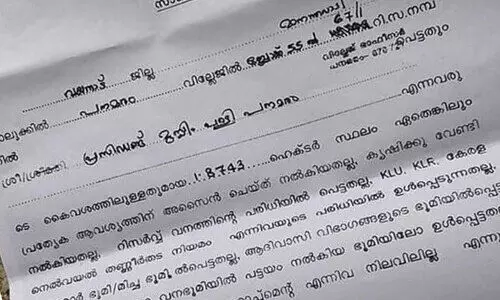 വയനാട് ജില്ല മാനന്തവാടി
ലൂക്കിൽ പനമരം വില്ലേജിൽ റി.സ.നമ്പ
67/1
വില്ലേജ് ഓഫീസർ
പനമരം- 670 പ്പെട്ടതും
ൽ
ശ്രീ/ശ്രീമതി പ്രസിഡണ്ട് പനമരം എന്നവരു
ടെ കൈവശത്തിലുള്ളതുമായ 1.8743 ഹെക്ടർ സ്ഥലം ഏതെങ്കിലും
പ്രത്യേക ആവശ്യത്തിന് അസൈൻ ചെയ്ത് നൽകിയതല്ല, കൃഷിക്കു വേണ്ടി
നൽകിയതല്ല, റിസർവ്വ് വനത്തിന്റെ പരിധിയിൽ പെട്ടതല്ല, KLU, KLR, കേരള
നെൽവയൽ തണ്ണീർതട നിയമം എന്നിവയുടെ പരിധിയിൽ ഉൾപ്പെടുന്നതല്ല,
ഭൂമി/മിച്ച ഭൂമി ൽപെട്ടതല്ല, ആദിവാസി വിഭാഗങ്ങളുടെ ഭൂമിയിൽപ്പെ
വനഭൂമിയിൽ പട്ടയം നൽകിയ ഭൂമിയിലോ ഉൾപ്പെട്ടത
മെന്റ് എന്നിവ നിലവിലില്ല എന്നു